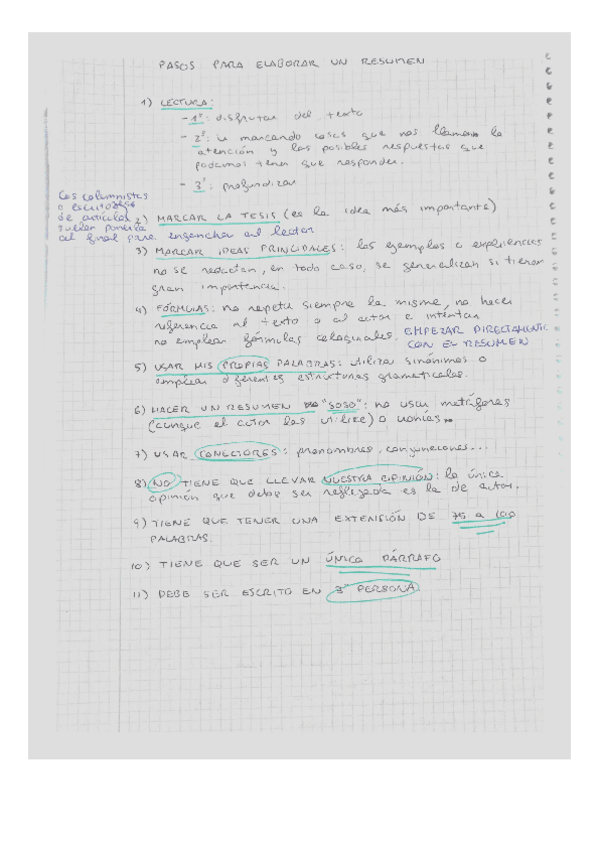 PASOS PARA ELABORAR UN RESUMEN
1) LECTURA:
- 1ª: disfrutar del texto
- 2ª: ir marcando cosas que nos llamen la
atención y las posibles respuestas que
podamos tener que responder.
- 3ª: profundizar
Los columnistas
o escritores
de artículos
suelen ponerla
al final para enganchar al lector
2) MARCAR LA TESIS (es la idea más importante)
3) MARCAR IDEAS PRINCIPALES: los ejemplos o experiencias
no se redactan, en todo caso, se generalizan si tienen
gran importancia.
4) FÓRMULAS: no repetir siempre la misma, no hacer
referencia al texto o al autor e intentar
no emplear fórmulas coloquiales. EMPEZAR DIRECTAMENTE
CON EL RESUMEN
5) USAR MIS PROPIAS PALABRAS: utilizar sinónimos o
emplear diferentes estructuras gramaticales.
6) HACER UN RESUMEN "SOSO": no usar metáforas
(aunque el autor las utilice) o ironías.
7) USAR CONECTORES: pronombres, conjunciones...
8) NO TIENE QUE LLEVAR NUESTRA OPINIÓN: la única
opinión que debe ser reflejada es la de autor.
9) TIENE QUE TENER UNA EXTENSIÓN DE 75 a 100
PALABRAS.
10) TIENE QUE SER UN ÚNICO PÁRRAFO
11) DEBE SER ESCRITO EN 3ª PERSONA